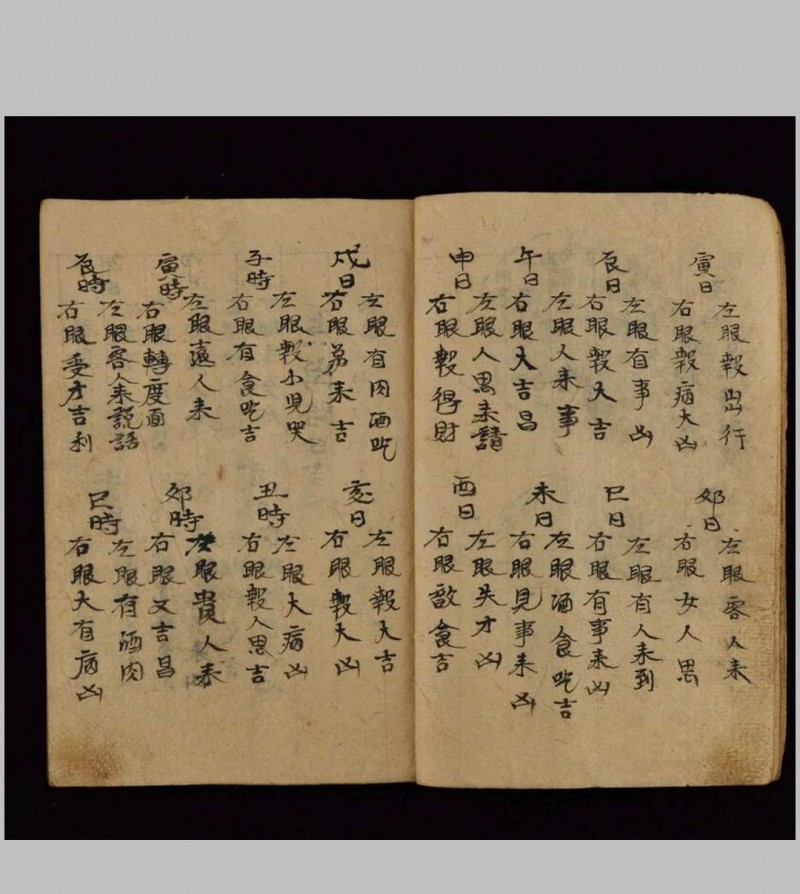 寅日
左眼報出行
右眼報病大凶
卯日
左眼客人来
右眼女人思
辰日
左眼有事凶
右眼報大吉
巳日
左眼有人来到
右眼有事来凶
午日
左眼人来事
右眼大吉昌
未日
左眼酒食吃吉
右眼見事来凶
申日
左眼人思来請
右眼報得財
酉日
左眼失才凶
右眼食吉
戌日
左眼有肉酒吃
右眼来吉
亥日
左眼報大吉
右眼報大凶
子時
左眼報小児哭
右眼有食吃吉
丑時
左眼大病凶
右眼報人思吉
寅時
左眼人来
右眼轉度面
卯時
左眼貴人来
右眼又吉昌
辰時
左眼客人来説話
右眼受才吉利
巳時
左眼有酒肉
右眼大有病凶